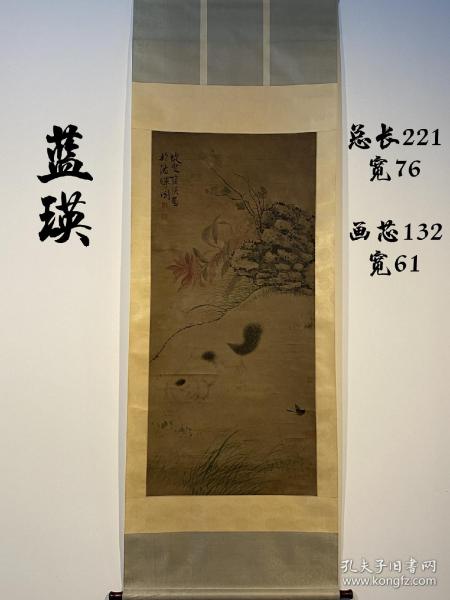 蓝瑛
总长221
宽76
画芯132
宽61
孔夫子旧书网
www.kongfz.com